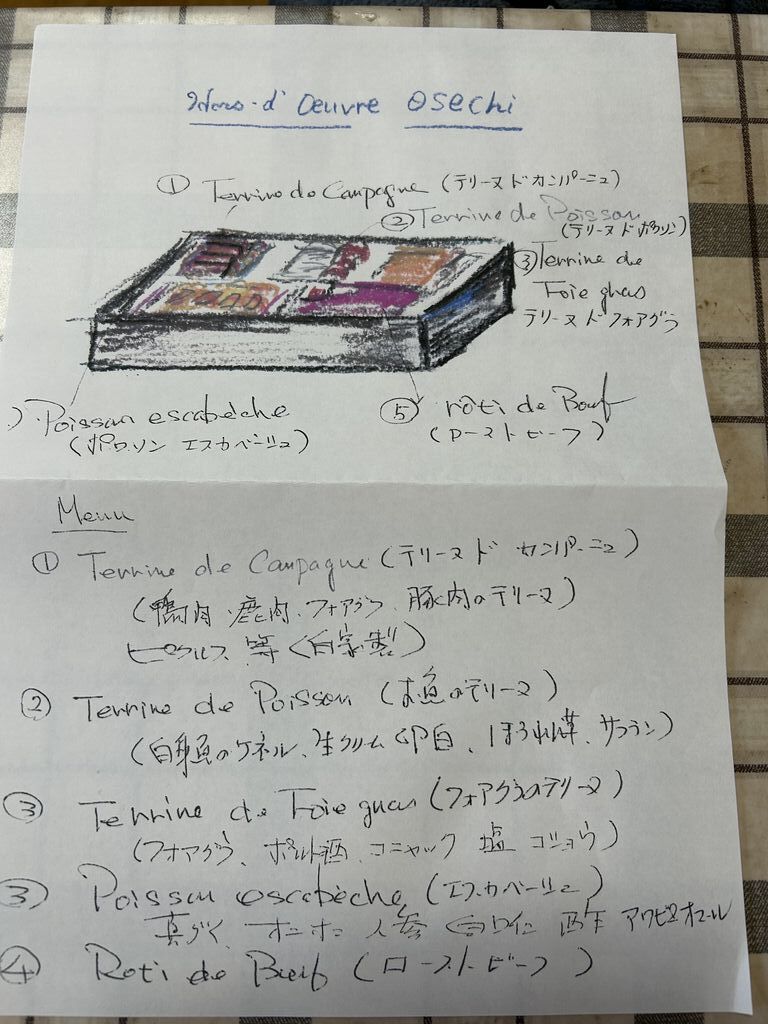 Hors-d'Oeuvre OSECHI
① Terrine de Campagne (テリーヌ ド カンパーニュ)
② Terrine de Poisson
(テリーヌ ド ポワソン)
③ Terrine de
Foie gras
テリーヌ ド フォアグラ
) Poisson escabèche
(ポワソン エスカベーシュ)
⑤ rôti de Bœuf
(ローストビーフ)
Menu
① Terrine de Campagne (テリーヌ ド カンパーニュ)
(鴨肉、鹿肉、フォアグラ、豚肉のテリーヌ)
ピクルス 等 (自家製)
② Terrine de Poisson (お魚のテリーヌ)
(白身魚のクネル、生クリーム 卵白、ほうれん草、サフラン)
③ Terrine de Foie gras (フォアグラのテリーヌ)
(フォアグラ、ポルト酒、コニャック 塩 コショウ)
③ Poisson escabèche (エスカベーシュ)
人参 白ワイン
④ Roti de Bœuf (ローストビーフ)